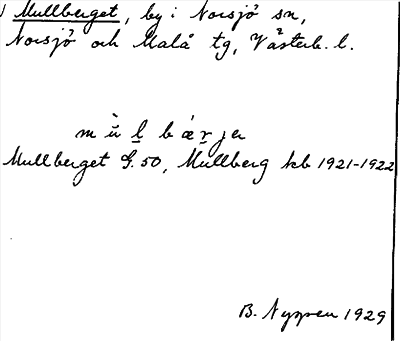 Mullberget, by i Norsjö sn,
Norsjö och Malå tg, Västerb. l.
mùḷbáṛjer
Mullberget G. 50, Mullberg kb 1921-1922
B. Nyppen 1929